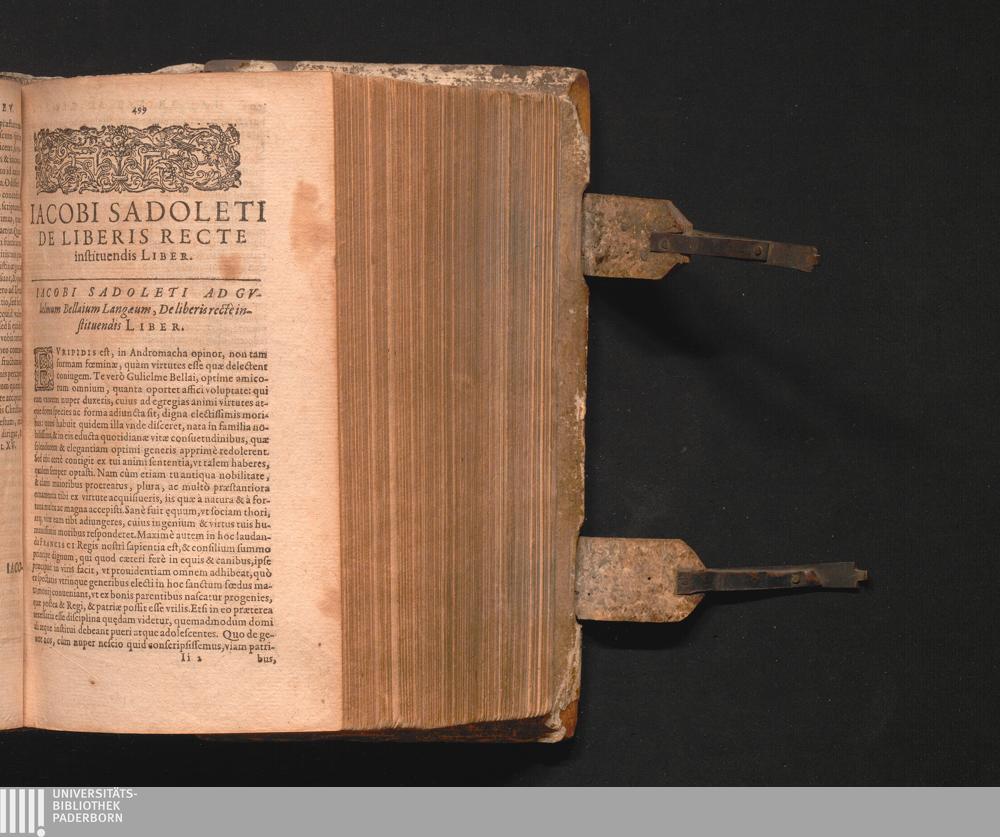 499
IACOBI SADOLETI
DE LIBERIS RECTE
inſtituendis LIBER.
IACOBI SADOLETI AD GV-
lielmum Bellaium Langæum, De liberis recte in-
ſtituendis LIBER.
EVRIPIDIS eſt, in Andromacha opinor, non tam
formam fœminæ, quàm virtutes eſſe quæ delectent
coniugem. Te verò Gulielme Bellai, optime amico-
rum omnium, quanta oportet affici voluptate: qui
eam vxorem nuper duxeris, cuius ad egregias animi virtutes at-
que domi ſpecies ac forma adiuncta ſit, digna electiſſimis mori-
bus: quos habuit quidem illa vnde diſceret, nata in familia no-
biliſſima, & in eis educta quotidianæ vitæ conſuetudinibus, quæ
ſplendorem & elegantiam optimi generis apprimè redolerent.
Sed etſi certè contigit ex tui animi ſententia, vt talem haberes,
qualem ſemper optaſti. Nam cùm etiam tu antiqua nobilitate,
& claris maioribus procreatus, plura, ac multò præſtantiora
ornamenta tibi ex virtute acquiſiueris, iis quæ à natura & à for-
tuna multa ac magna accepiſti. Sanè fuit ęquum, vt ſociam thori,
atq; vitæ eam tibi adiungeres, cuius ingenium & virtus tuis hu-
maniſſimis moribus reſponderet. Maximè autem in hoc laudan-
da FRANCISCI Regis noſtri ſapientia eſt, & conſilium ſummo
principe dignum, qui quod cæteri ferè in equis & canibus, ipſe
præcipuè in viris facit, vt prouidentiam omnem adhibeat, quò
ex ſpectatis vtrinque generibus electi in hoc ſanctum fœdus ma-
trimonij conueniant, vt ex bonis parentibus naſcatur progenies,
quæ poſtea & Regi, & patriæ poſſit eſſe vtilis. Etſi in eo præterea
neceſſaria eſſe diſciplina quędam videtur, quemadmodum domi
ali atque inſtitui debeant pueri atque adoleſcentes. Quo de ge-
nere nos, cùm nuper neſcio quid conſcripſiſſemus, viam patri-
Ii 2 bus,
IACO-
UNIVERSITÄTS-
BIBLIOTHEK
PADERBORN